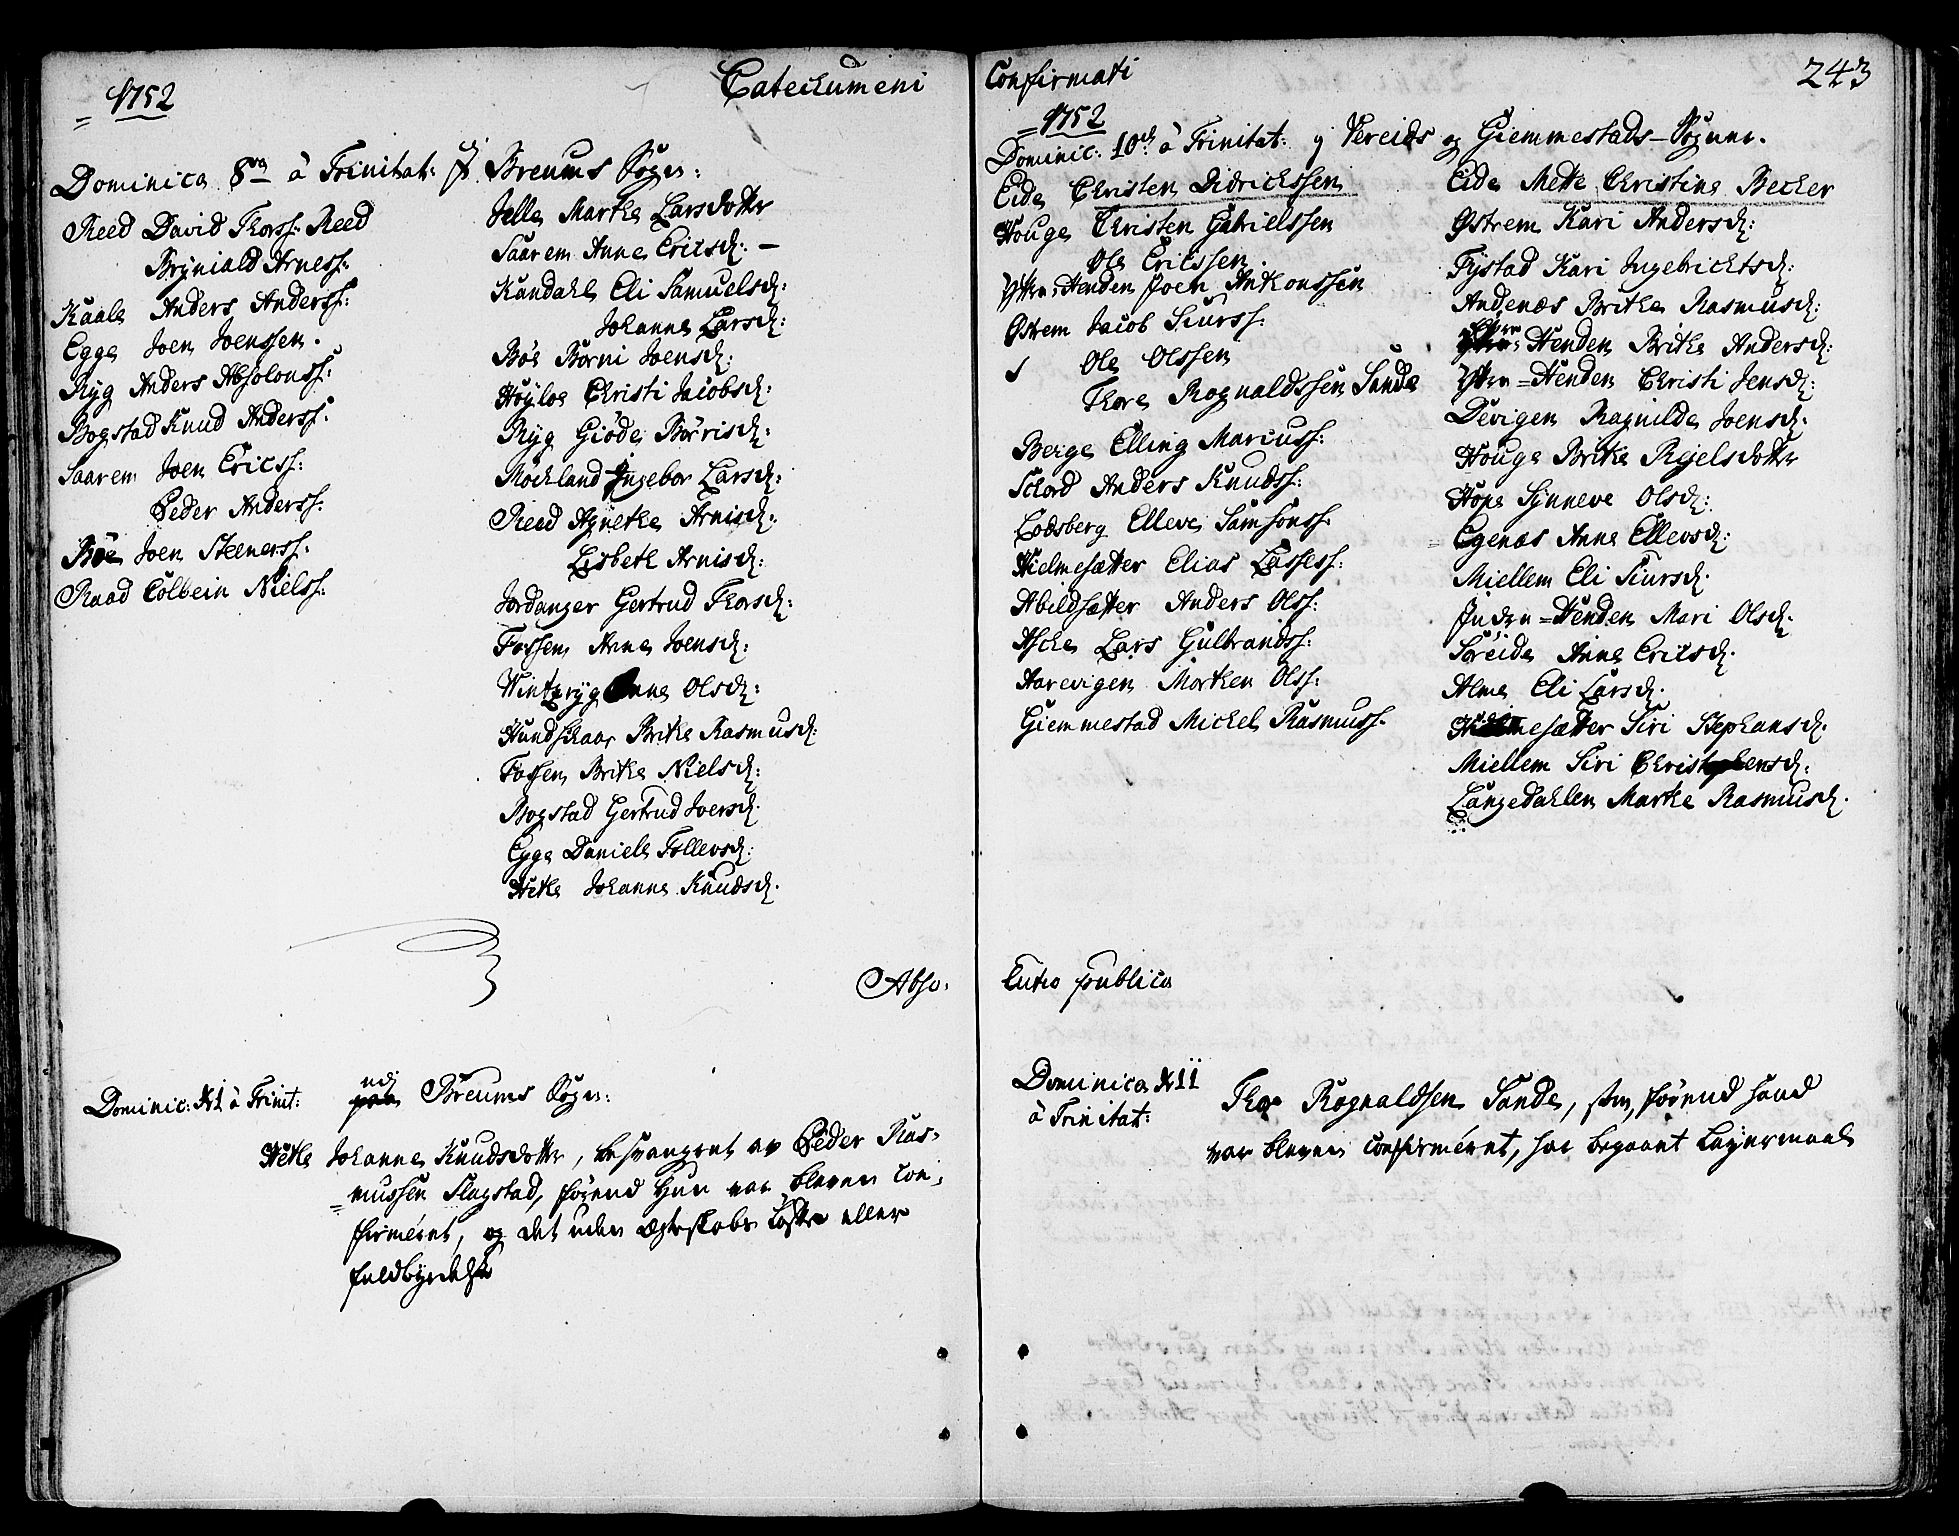 1752
Catechumeni
Dominica 8va à Trinitat: j Breums Sogn:
Reed David Thorss: Reed
Bryniald Arness:
Kaale Anders Anderss:
Egge Joen Joenssen.
Ryg Anders Absolonss:
Bogstad Knud Anderss:
Saarem Joen Ericss:
Peder Anderss:
Böe Joen Steenerss:
Raad Colbein Nielss:
Jelle Marthe Larsdotter
Saarem Anne Ericsd: –
Kandahl Eli Samuelsd:
Johanne Larsd:
Böe Börni Joensd:
Höyloe Christi Jacobsd:
Ryg Giöde Börrisd:
Mochland Ingebor Larsd:
Reed Agnethe Arnisd:
Lisbeth Arnisd:
Jordanger Gertrud Thorsd:
Fossen Anne Joensd:
Vinteryg Anne Olsd:
Hundskaar Brithe Rasmusd:
Fossen Brithe Nielsd:
Bogstad Gertrud Joersd.
Egge Daniele Tollevsd:
Hetle Johanne Knudsd.
Abso-
Dominic: XI à Trinit: udj Breums Sogn:
Hetle Johanne Knudsdotter, besvangret av Peder Ras-
mussen Flugstad, förend Hun var bleven Con-
firméret, og det uden Ægteskabs Löfte eller
fuldbyrdelse
Confirmati
243
1752
Dominic: 10de à Trinitat: j Vereids og Giemmestads-Sogner.
Eide Christen Didrichssen
Houge Christen Gabrielssen
Ole Ericssen.
Yttre-Henden Joen Antonssen
Östrem Jacob Siurss:
Ole Olssen
Thore Rognaldssen Sande
Berge Elling Marcuss:
Schord Anders Knudss:
Lodsberg Elleve Samsonss.
Hielmesætter Elias Lassess:
Abildsætter Anders Olss:
Aske Lars Gulbrandss:
Aarevigen Morten Olss:
Giemmestad Michel Rasmuss.
Eide Mette Christine Becher
Östrem Kari Andersd:
Tystad Kari Ingebrichtsd:
Andenæs Brithe Rasmusd:
Henden Brithe Andersd:
Yttre-Henden Christi Jensd:
Devigen Ragnilde Joensd.
Houge Brithe Rejelsdotter
Hope Synneve Olsd:
Egenæs Anne Ellevsd:
Miellem Eli Siursd.
Indre-Henden Mari Olsd.
Söreide Anne Ericsd.
Alme Eli Larsd.
Hielmesætter Siri Stephansd.
Miellem Siri Christophensd.
Langedahlen Marthe Rasmusd.
lutio publica
Dominica XII
à Trinitat:
Thor Rognaldsen Sande, som, förend hand
var bleven Confirméret, har begaaet Leyermaal